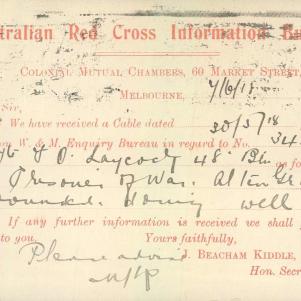 stralian Red Cross Information Bu
Colonial Mutual Chambers, 60 Market Street,
Melbourne, 7/6/18
Sir,
We have received a Cable dated 30/5/18
on W. & M. Enquiry Bureau in regard to No. 34
Laycock 48 Bn
Prisoner of War. Alten Gr
wounded. doing well
If any further information is received we shall
to you. Yours faithfully,
Please advise J. Beacham Kiddle,
Hon. Secr